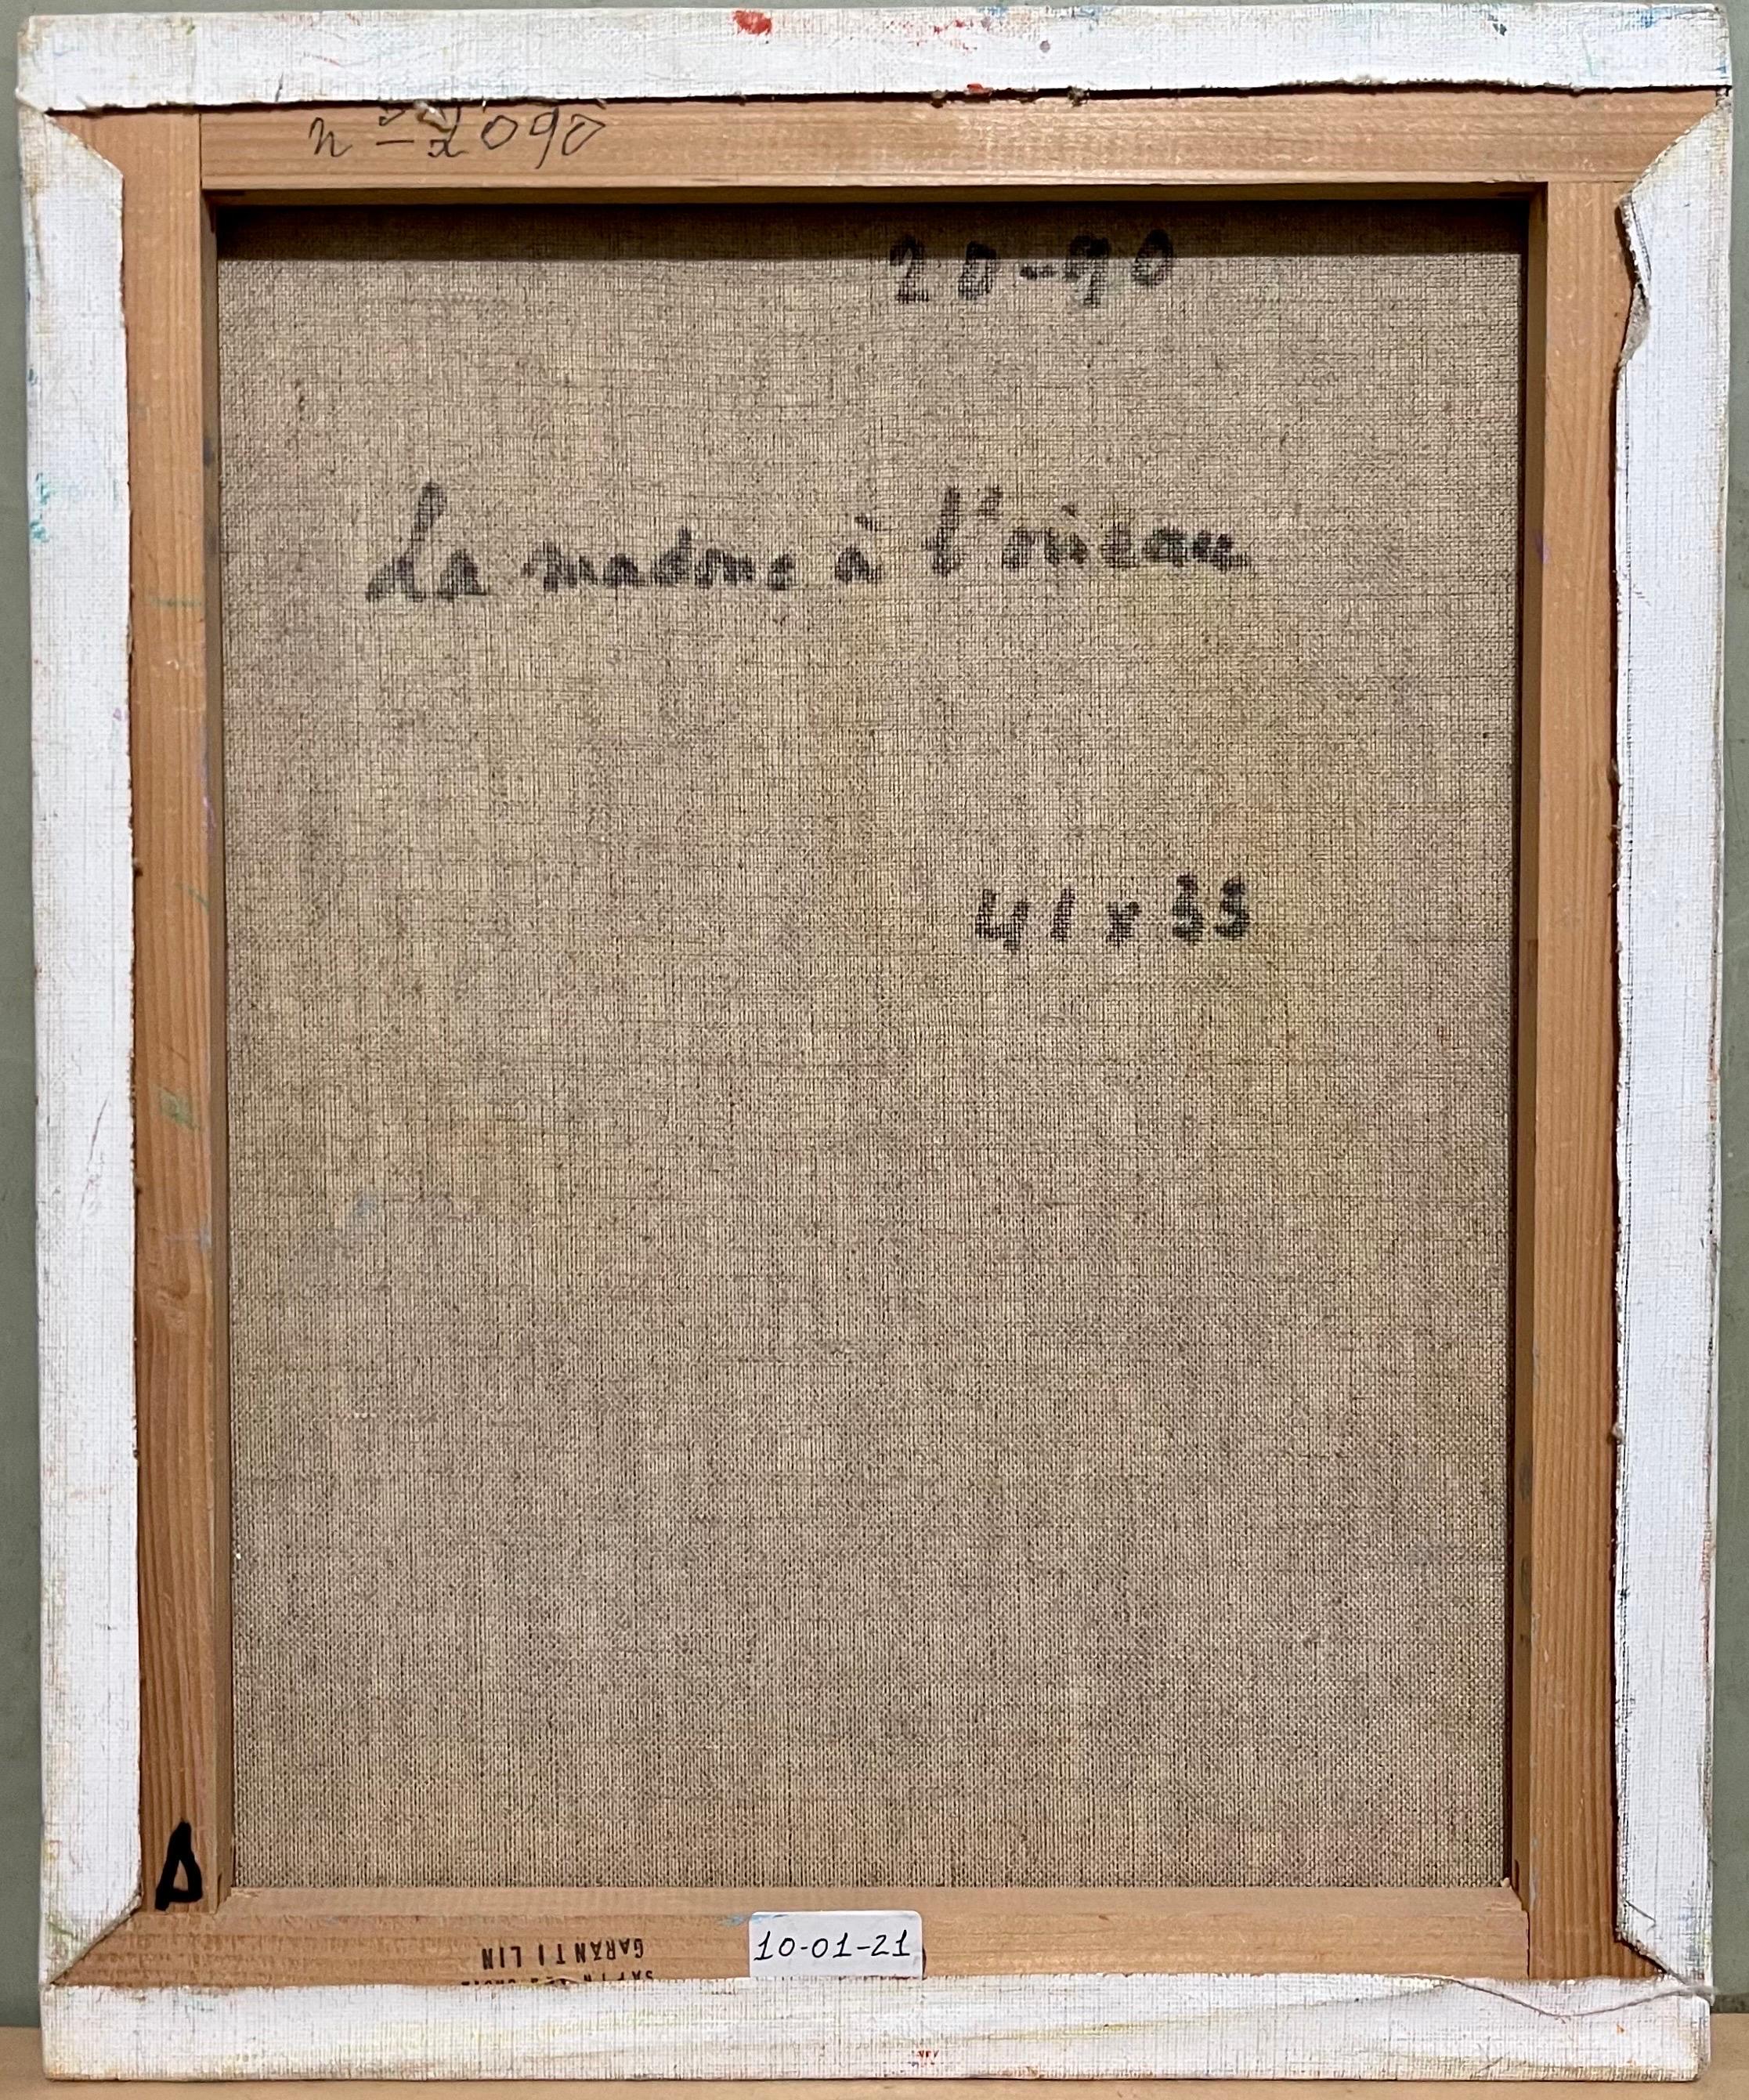 n° 2090
20-90
La madone à l'oiseau
41 x 33
10-01-21
GARANTI LIN